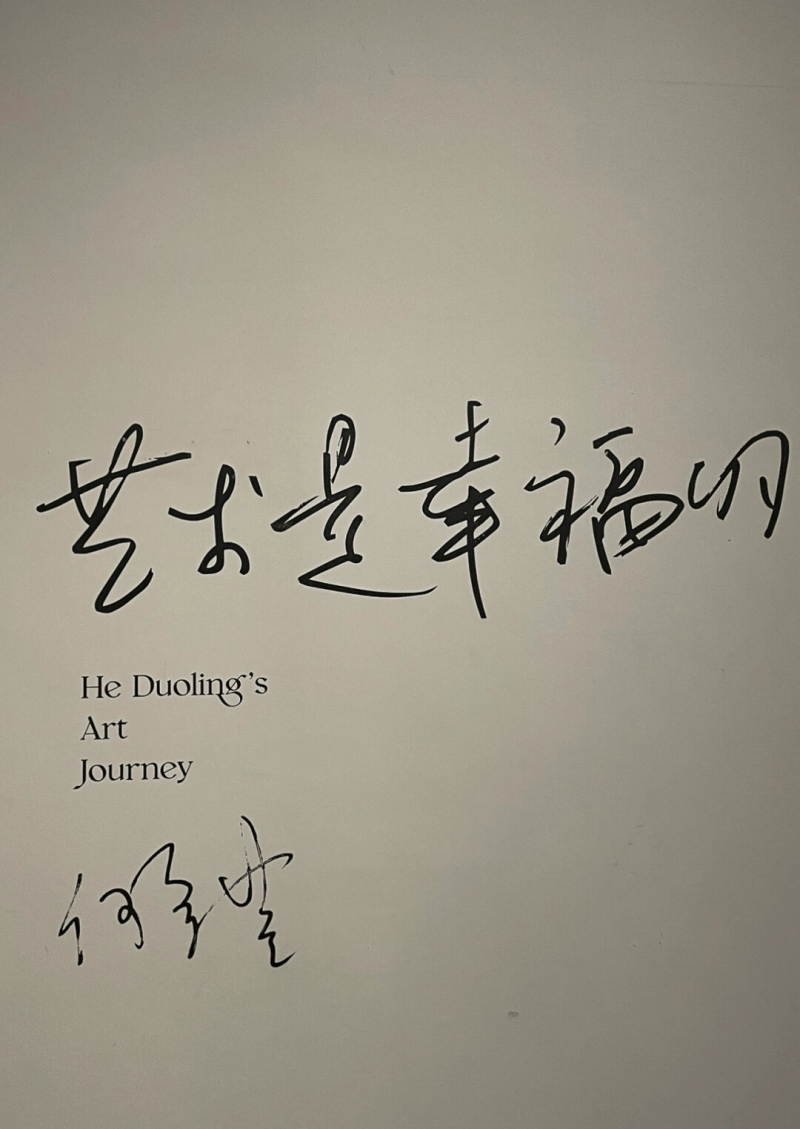 艺术是幸福的
He Duoling's
Art
Journey
何多苓